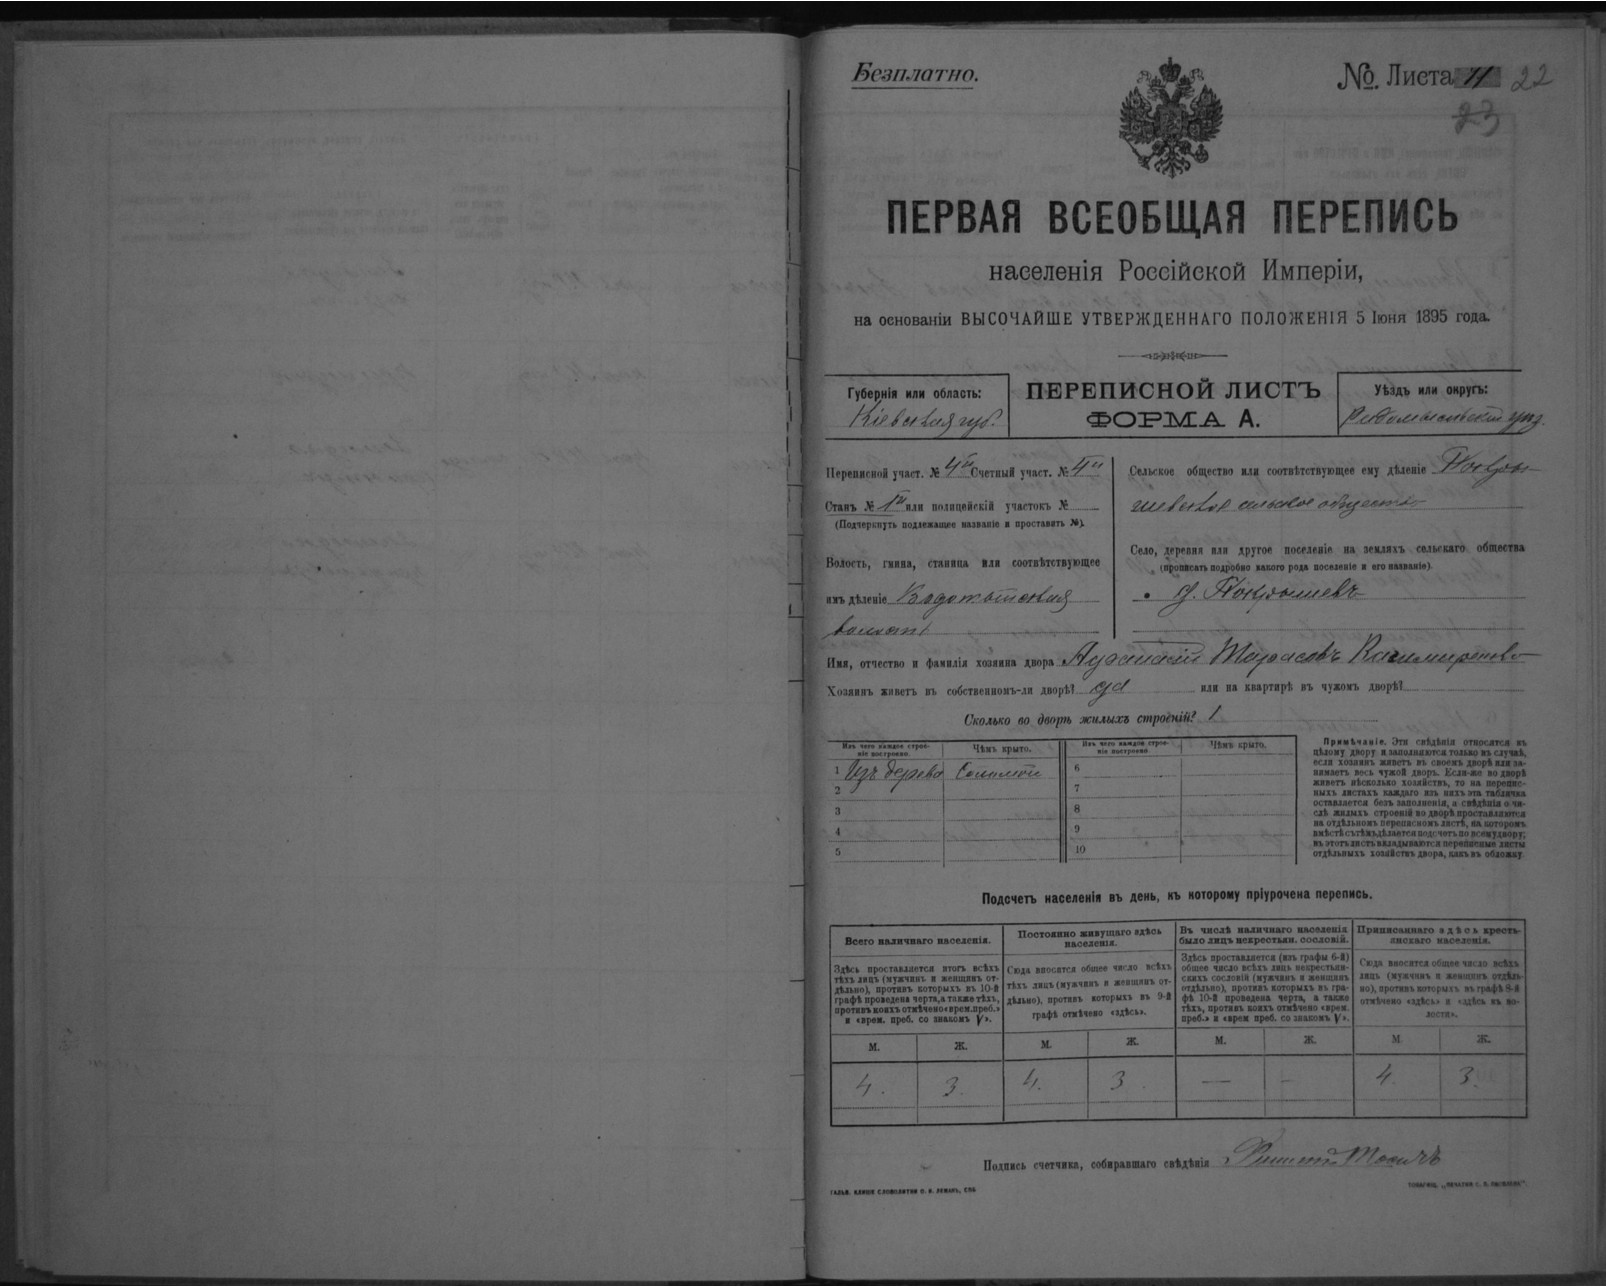 Безплатно.
№ Листа 11 22
23
ПЕРВАЯ ВСЕОБЩАЯ ПЕРЕПИСЬ
населенія Россійской Имперіи,
на основаніи ВЫСОЧАЙШЕ УТВЕРЖДЕННАГО ПОЛОЖЕНІЯ 5 Іюня 1895 года.
Губернія или область:
Кіевская губ.
ПЕРЕПИСНОЙ ЛИСТЪ
ФОРМА А.
Уѣздъ или округъ:
Радомысльскій уѣзд.
Переписной участ. № 4й Счетный участ. № 4й
Станъ № 1й или полицейскій участокъ №
(Подчеркнуть подлежащее названіе и проставить №).
Волость, гмина, станица или соотвѣтствующее
имъ дѣленіе Водотыйская
волость
Сельское общество или соотвѣтствующее ему дѣленіе
сельское общество
Село, деревня или другое поселеніе на земляхъ сельскаго общества
(прописать подробно какого рода поселеніе и его названіе)
Имя, отчество и фамилія хозяина двора Афанасій Тарасовъ
Хозяинъ живетъ въ собственномъ-ли дворѣ? да или на квартирѣ въ чужомъ дворѣ?
Сколько во дворѣ жилыхъ строеній? 1
Изъ чего каждое строеніе построено.
Чѣмъ крыто.
Изъ чего каждое строеніе построено.
Чѣмъ крыто.
1 Изъ дерева Соломою
2
3
4
5
6
7
8
9
10
Примѣчаніе. Эти свѣдѣнія относятся къ
цѣлому двору и заполняются только въ случаѣ,
если хозяинъ живетъ въ своемъ дворѣ или за-
нимаетъ весь чужой дворъ. Если-же во дворѣ
живетъ нѣсколько хозяйствъ, то на перепис-
ныхъ листахъ каждаго изъ нихъ эта табличка
оставляется безъ заполненія, а свѣдѣнія о чи-
слѣ жилыхъ строеній во дворѣ проставляются
на отдѣльномъ переписномъ листѣ, на которомъ
вмѣстѣ съ тѣмъ дѣлается подсчетъ по всему двору;
въ этотъ листъ вкладываются переписные листы
отдѣльныхъ хозяйствъ двора, какъ въ обложку.
Подсчетъ населенія въ день, къ которому пріурочена перепись.
Всего наличнаго населенія.
Здѣсь проставляется итогъ всѣхъ
тѣхъ лицъ (мужчинъ и женщинъ от-
дѣльно), противъ которыхъ въ 10-й
графѣ проведена черта, а также тѣхъ,
противъ коихъ отмѣчено «врем. преб.»
и «врем. преб. со знакомъ V».
Постоянно живущаго здѣсь
населенія.
Сюда вносятся общее число всѣхъ
тѣхъ лицъ (мужчинъ и женщинъ от-
дѣльно), противъ которыхъ въ 9-й
графѣ отмѣчено «здѣсь».
Въ числѣ наличнаго населенія
было лицъ некрестьян. сословій.
Здѣсь проставляется (изъ графы 6-й)
общее число всѣхъ лицъ некрестьян-
скихъ сословій (мужчинъ и женщинъ
отдѣльно), противъ которыхъ въ гра-
фѣ 10-й проведена черта, а также
тѣхъ, противъ коихъ отмѣчено «врем.
преб.» и «врем преб. со знакомъ V».
Приписаннаго здѣсь кресть-
янскаго населенія.
Сюда вносятся общее число всѣхъ
лицъ (мужчинъ и женщинъ отдѣль-
но), противъ которыхъ въ графѣ 8-й
отмѣчено «здѣсь» и «здѣсь въ во-
лости».
М. Ж. М. Ж. М. Ж. М Ж.
4. 3. 4. 3 — - 4. 3.
Подпись счетчика, собиравшаго свѣдѣнія